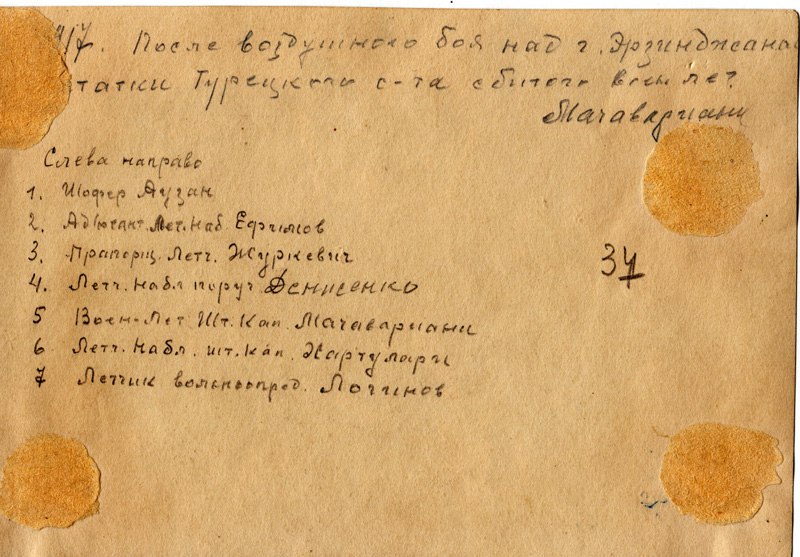 /7. После воздушного боя над г. Эрзинджана
татки Турецкого с-та сбитого воен лет.
Мачавариани
Слева направо
1. Шофер Аузан
2. Адъютант. Лет. Наб. Ефимов
3. Прапорщ. Летч. Журкевич
34
4. Летч. Набл. поруч. Денисенко
5 Воен-Лет Шт. Кап. Мачавариани
6 Летч. Набл. шт. кап.
7 Летчик вольноопред. Лочинов